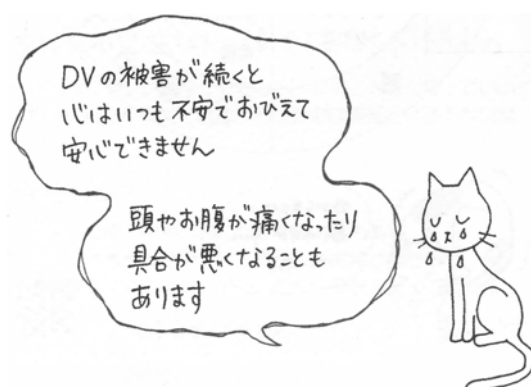 DVの被害が続くと
心はいつも不安でおびえて
安心できません
頭やお腹が痛くなったり
具合が悪くなることも
あります